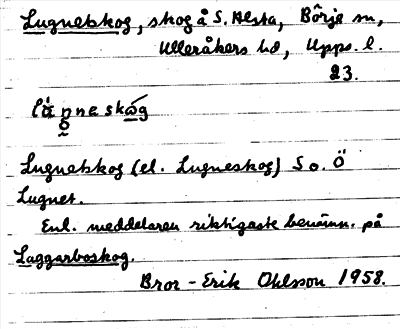 Lugnetskog, skog å S. Älsta, Börje sn,
Ulleråkers hd, Upps. l.
23.
Lugnetskog (el. Lugneskog) S o. Ö
Lugnet.
Enl. meddelaren riktigaste benämn. på
Laggarboskog.
Bror-Erik Ohlsson 1958.